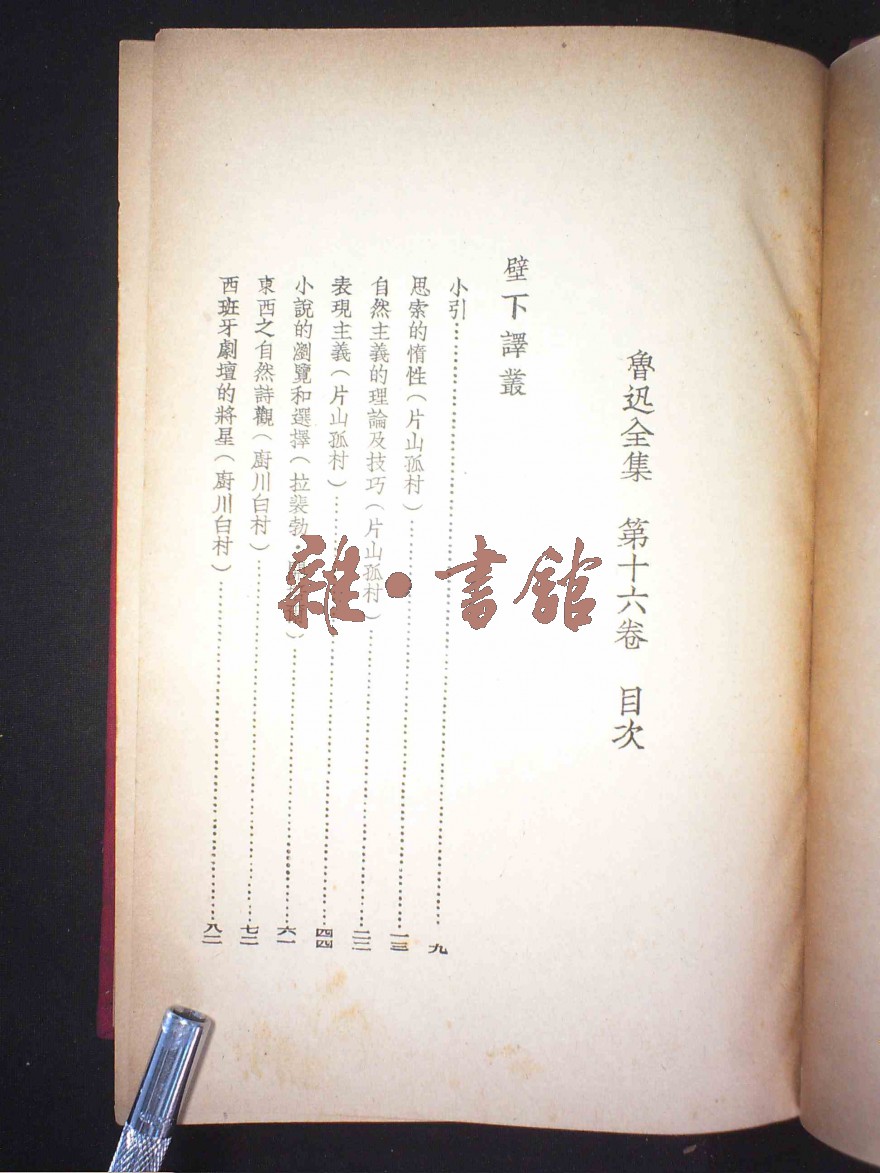 魯迅全集　第十六卷　目次
壁下譯叢
小引……九
思索的惰性(片山孤村)……一三
自然主義的理論及技巧(片山孤村)……二二
表現主義(片山孤村)……四四
小說的瀏覽和選擇(拉裴勃……)……六一
東西之自然詩觀(廚川白村)……七二
西班牙劇壇的將星(廚川白村)……八二
雜·書館